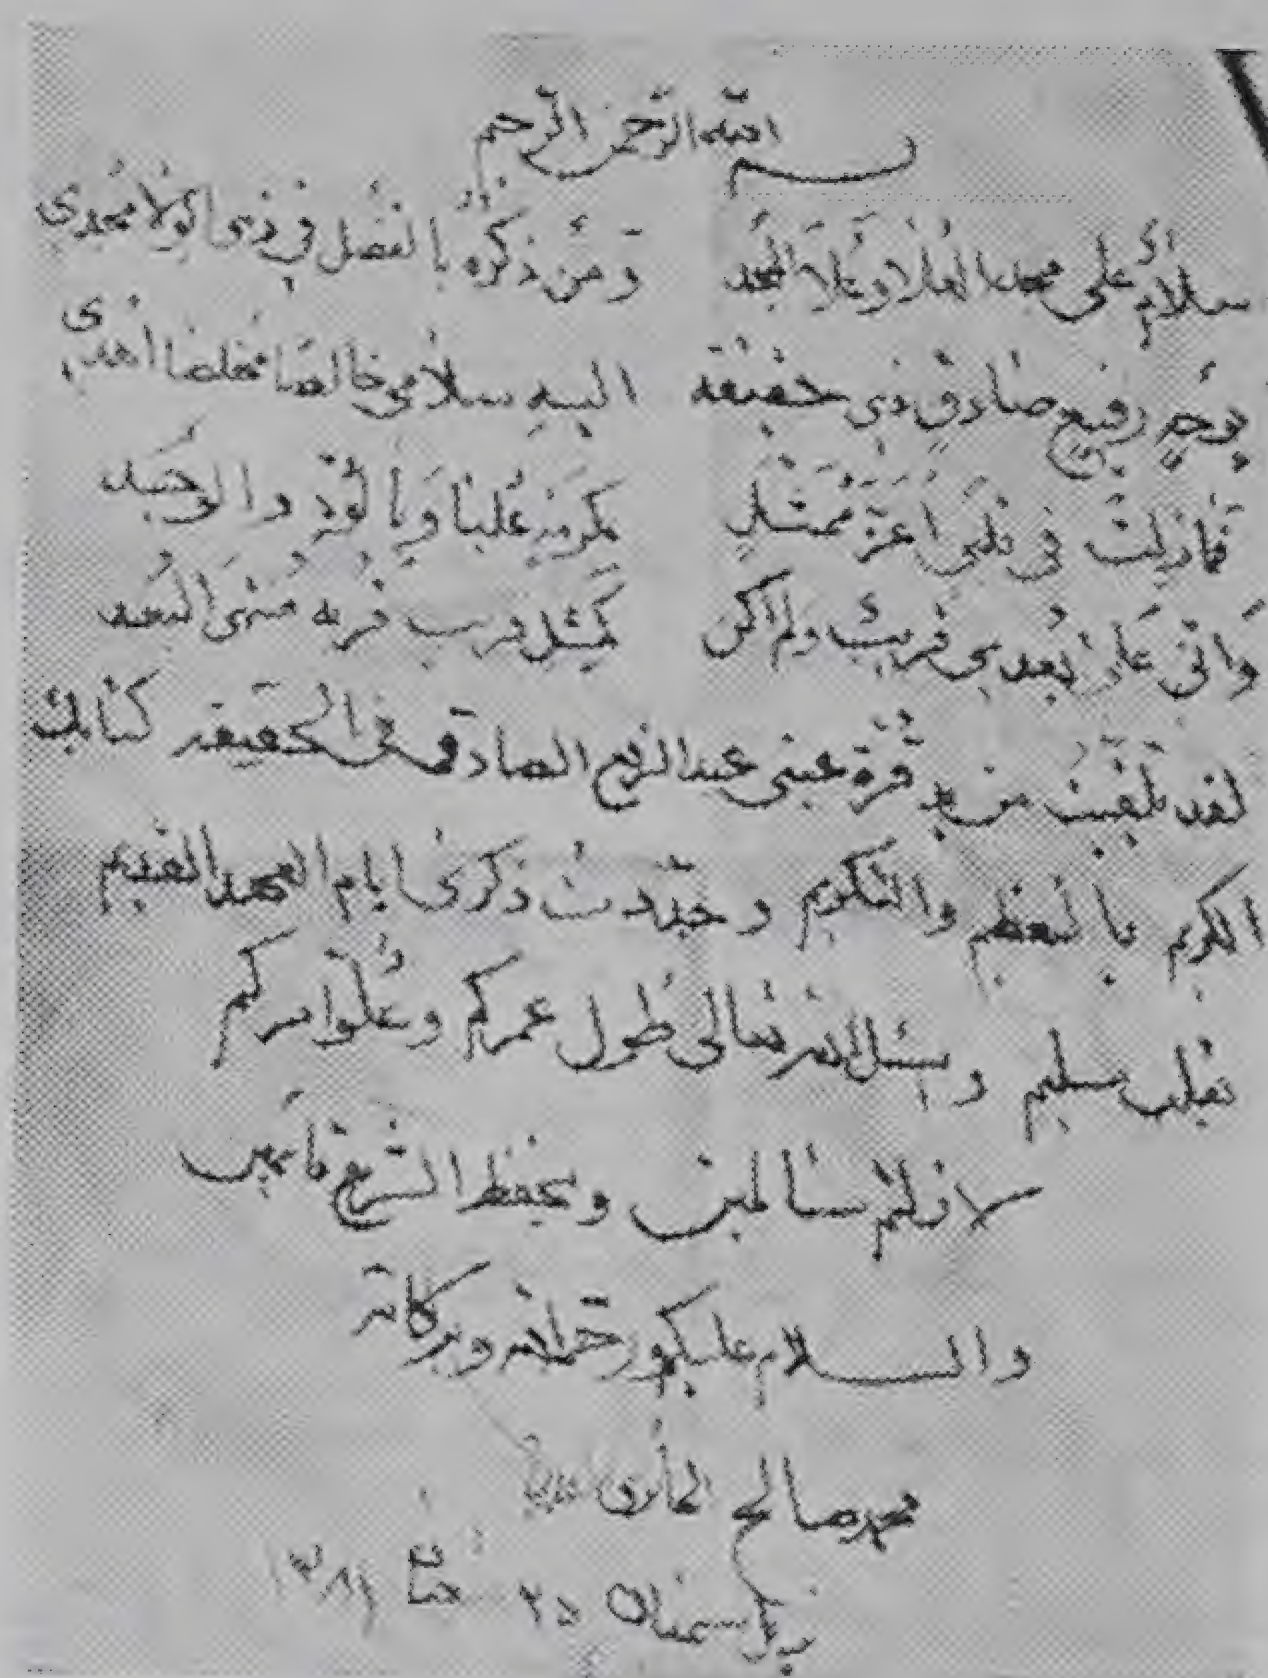 بسم الله الرحمن الرحيم
سلام على مجد العلا وعلا المجد ومن ذكره بالفضل في ذي الولا مجدي
بوجه رفيع صادق ذي حقيقة اليه سلامي خالصا مخلصا اهدى
فما زلت في قلبي اعز ممثل علينا وبالود والوجد
واني بعد بي قريب ولم اكن كمثل قريب قربه منتهى البعد
لقد تلقيت من يد قرة عيني عبد الرفيع الصادق في الحقيقة كتابك
الكريم بالتعظيم والتكريم وجددت ذكرى ايام العهد القديم
بقلب سليم و نسئل الله تعالى طول عمركم وعلو امركم
لا زلتم سالمين وبحفظ الشرع قائمين
والسلام عليكم ورحمة الله وبركاته
محمد صالح الحائري
سمنان ٢٥ ١٣٨١